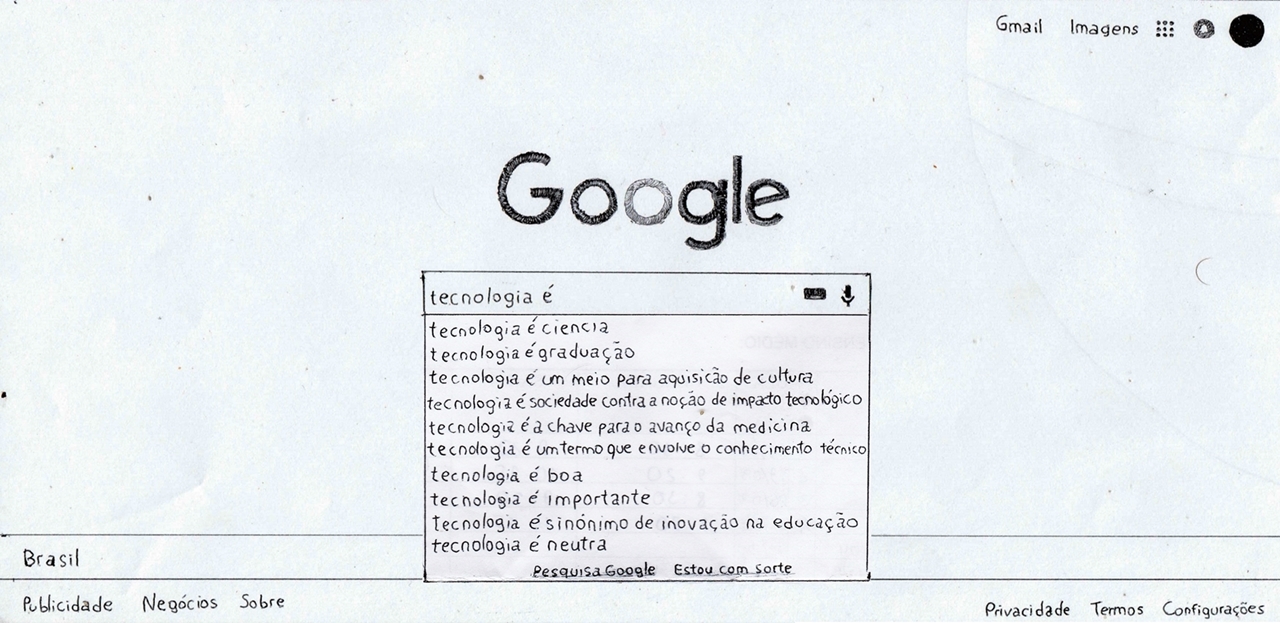 Gmail Imagens
Google
tecnologia é
tecnologia é ciencia
tecnologia é graduação
tecnologia é um meio para aquisicão de cultura
tecnologia é sociedade contra a noção de impacto tecnológico
tecnologia é a chave para o avanço da medicina
tecnologia é um termo que envolve o conhecimento técnico
tecnologia é boa
tecnologia é importante
tecnologia é sinónimo de inovação na educação
tecnologia é neutra
Pesquisa Google Estou com Sorte
Brasil
Publicidade Negócios Sobre
Privacidade Termos Configurações